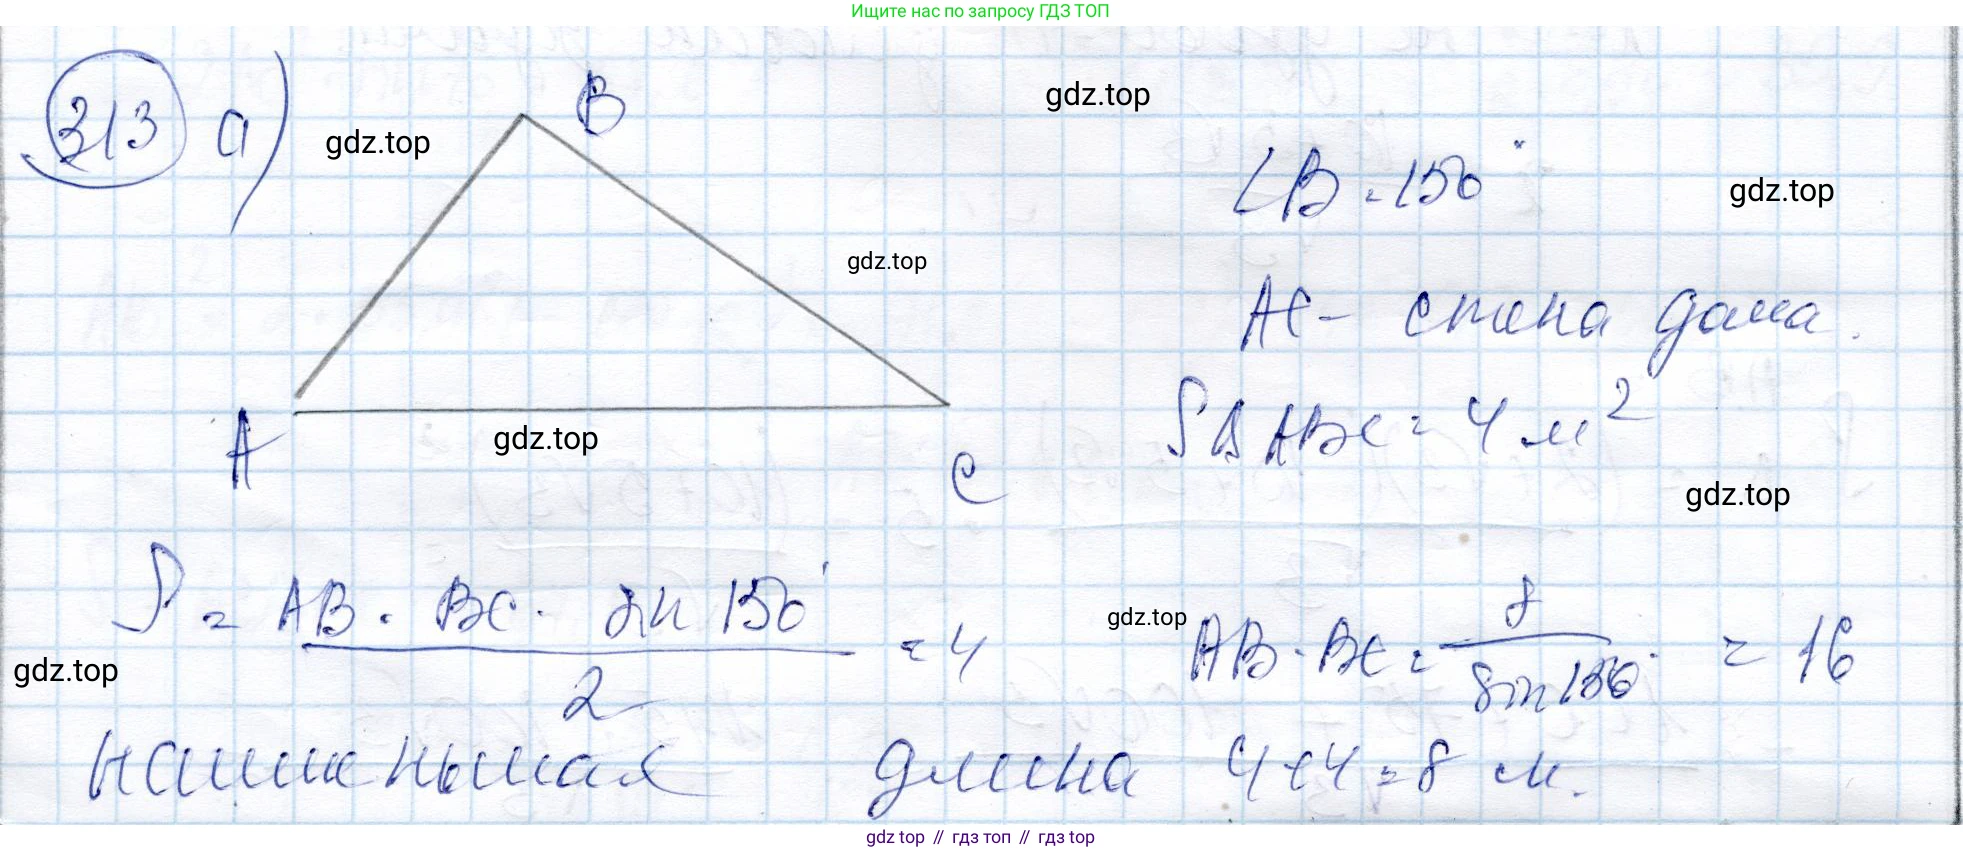 Ищите нас по запросу ГДЗ ТОП
313 а)
B
gdz.top
gdz.top
∠B = 150°
gdz.top
gdz.top
AC - стена дома.
A
gdz.top
C
S Δ ABC = 4 м²
gdz.top
S = AB · BC · sin 150° / 2 = 4
gdz.top
AB · BC = 8 / sin 150° = 16
gdz.top
наименьшая длина 4+4=8 м.
gdz top // гдз топ // гдз top